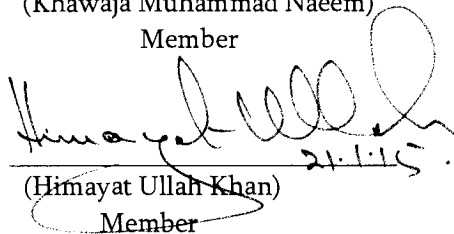 (Khawaja Muhammad Naeem)
Member
Himayat Ullah
21.1.15.
(Himayat Ullah Khan)
Member